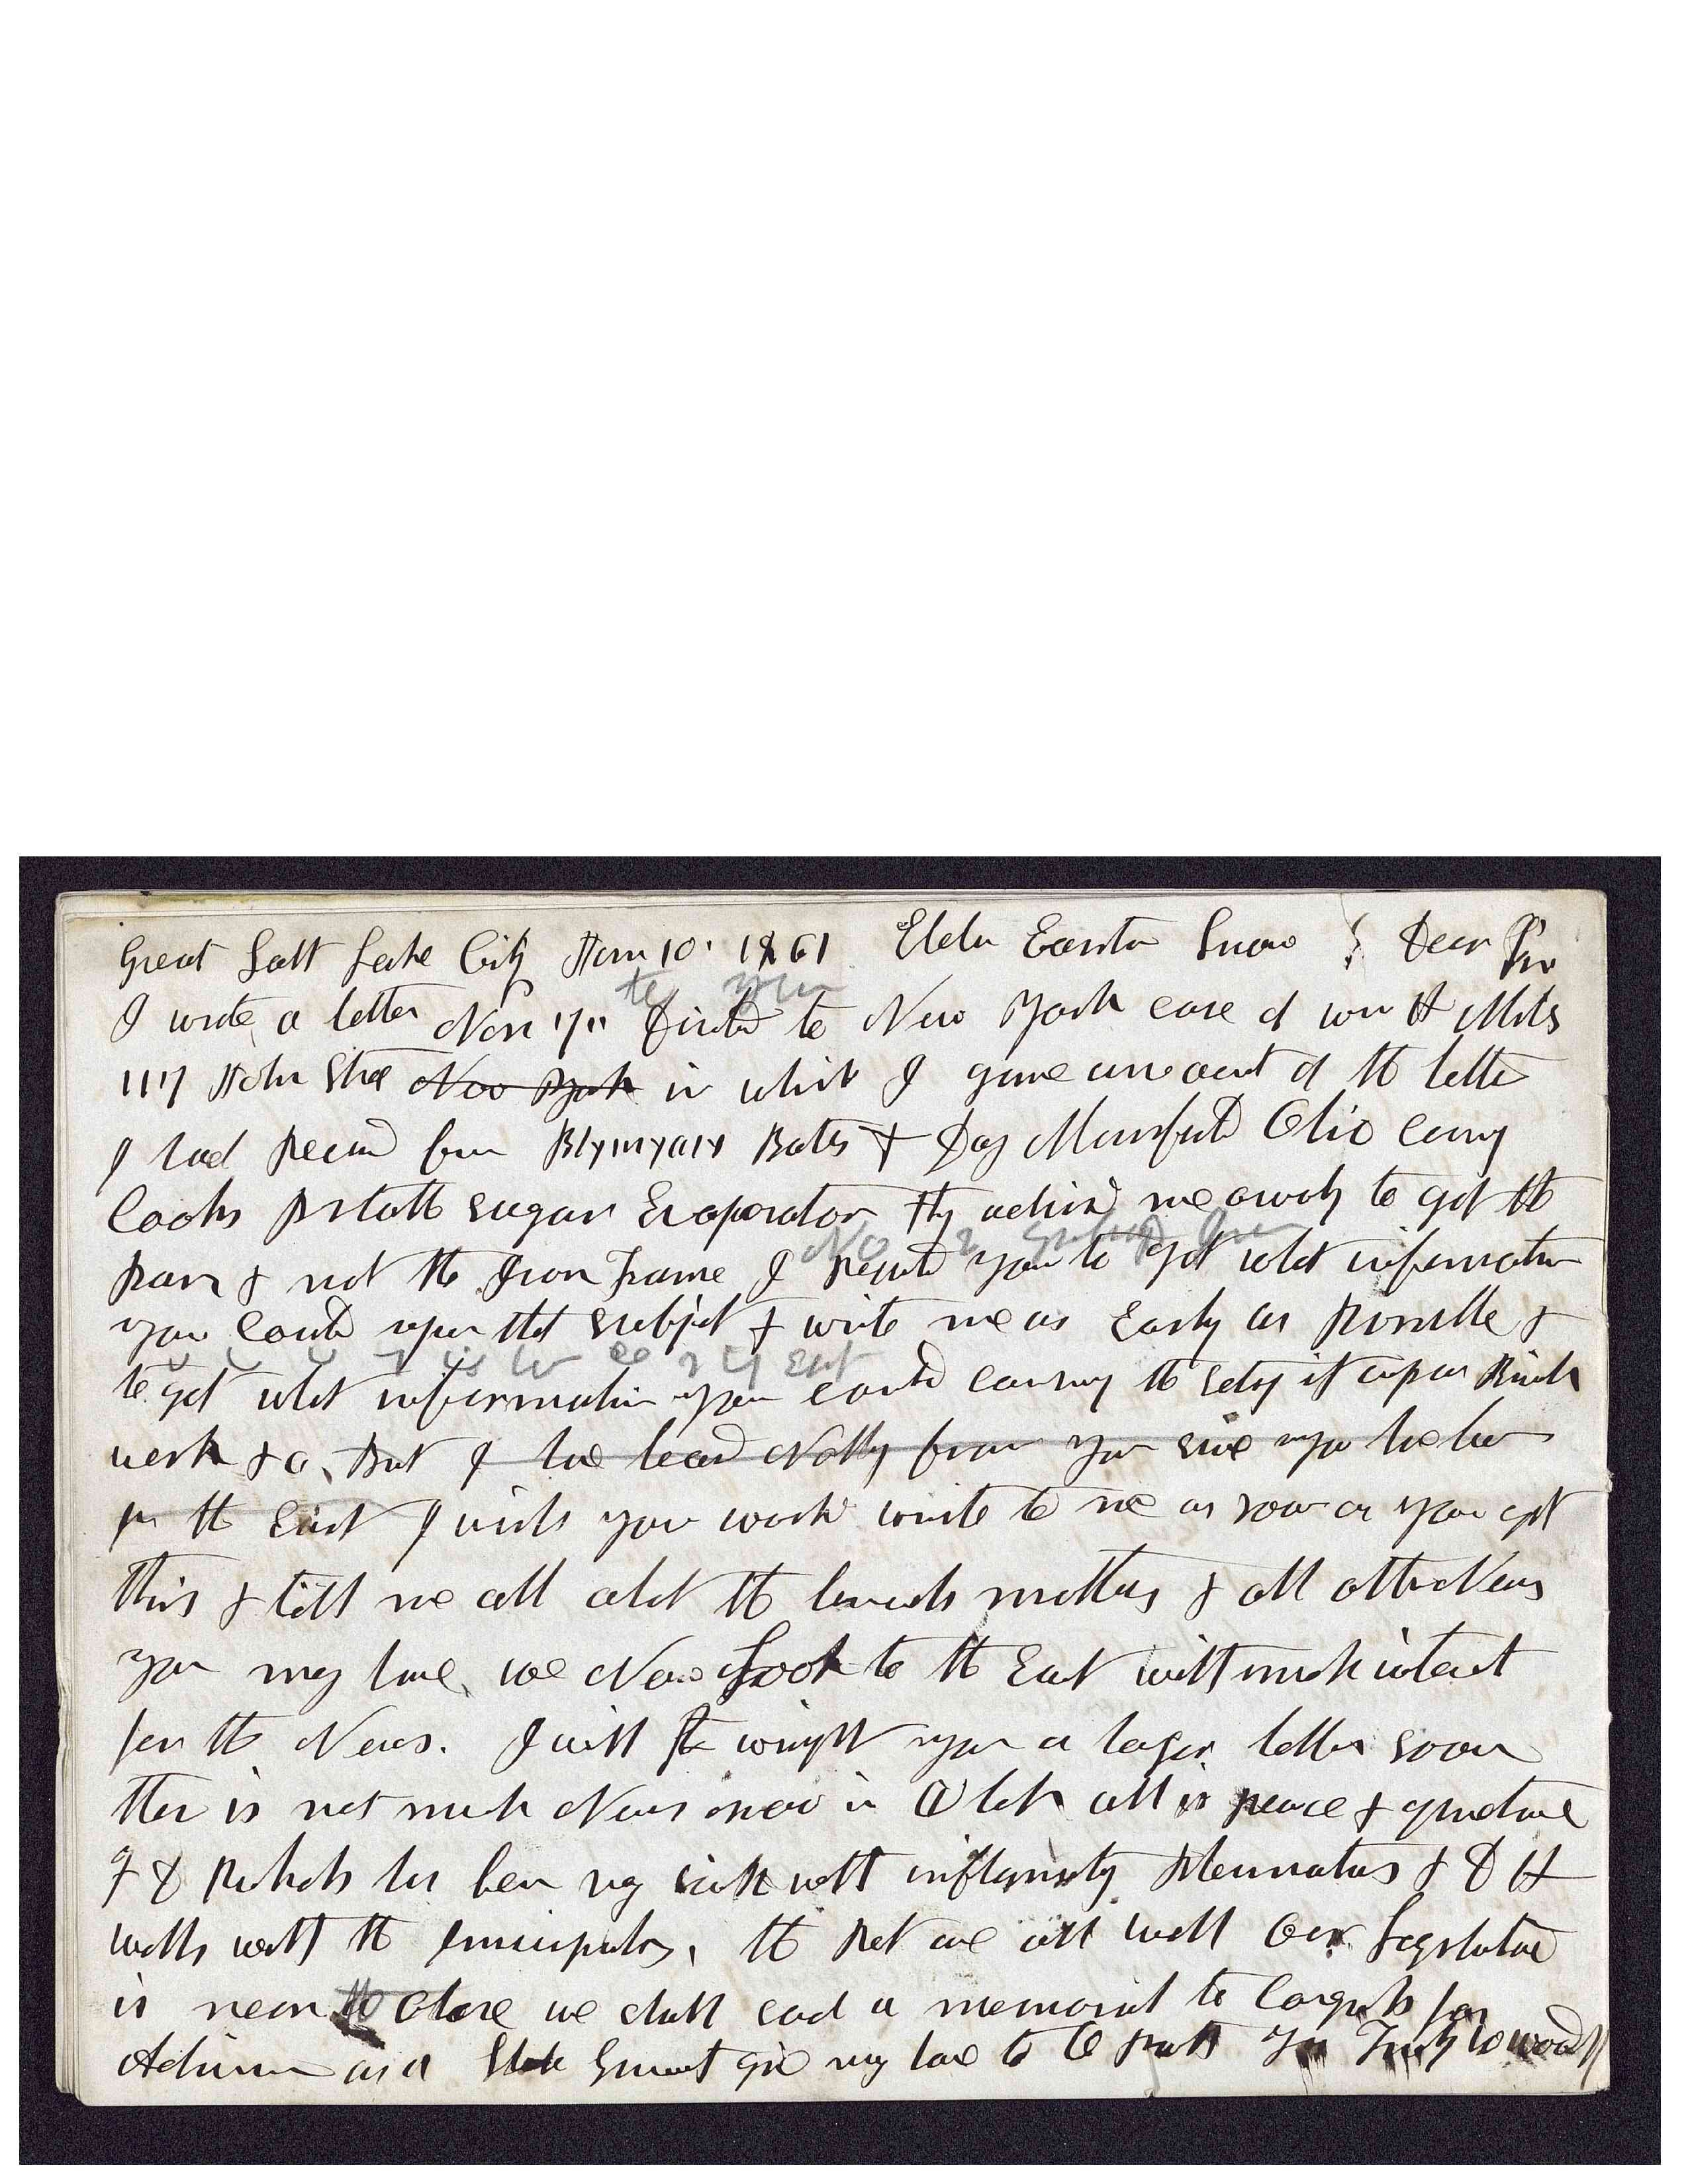 Great Salt Lake City Jan 10. 1861 Elder Erastus Snow Dear Sir
I wrote a letter Nov 17" Directed to New York care of Wm H Miles
117 John Stre New York in which I gave an account of the letter
I had Recievd from Blymyair Bates & Day Mansfield Ohio Concerning
Cooks Portable sugar Evaporator they advised me ownly to get the
pan & not the Iron Frame I Requested you to get what information
you could upon that subject & write me as Early as Possible &
to get what information you could concerning the seting it up on Brick
work &c, But I have heard Nothing from you since you have been
in the East I wish you would write to me as soon as you get
this & tell me all about the Church matters & all other News
you may have, we Now Look to the East with much interest
for the News. I will wright you a larger letter soon
ther is not much News now in Utah all is peace & quietude
F D Richards has been very sick with inflamatory Rheumatism & D H
Wells with the the Rest are all well Our Legislature
is near close we shall send a memorial to Congress for
Admission as a State Govermt give my love to O Pratt Yours Truly W Woodruff
to you
No
East